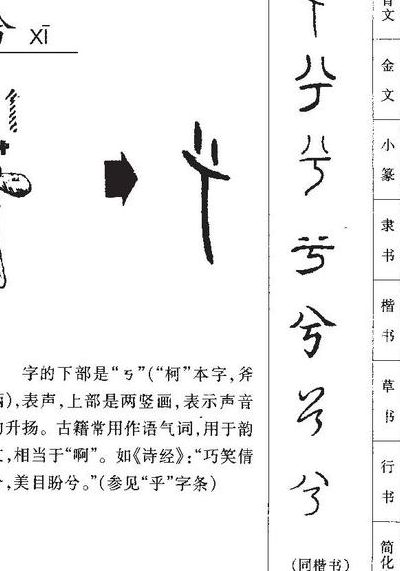 兮 xī
字的下部是“丂”(“柯”本字,斧
),表声,上部是两竖画,表示声音
的升扬。古籍常用作语气词,用于韵
,相当于“啊”。如《诗经》:“巧笑倩
兮,美目盼兮。”(参见“乎”字条)
文
金文
兮
小篆
兮
隶书
兮
楷书
兮
草书
兮
行书
兮
简化
(同楷书)